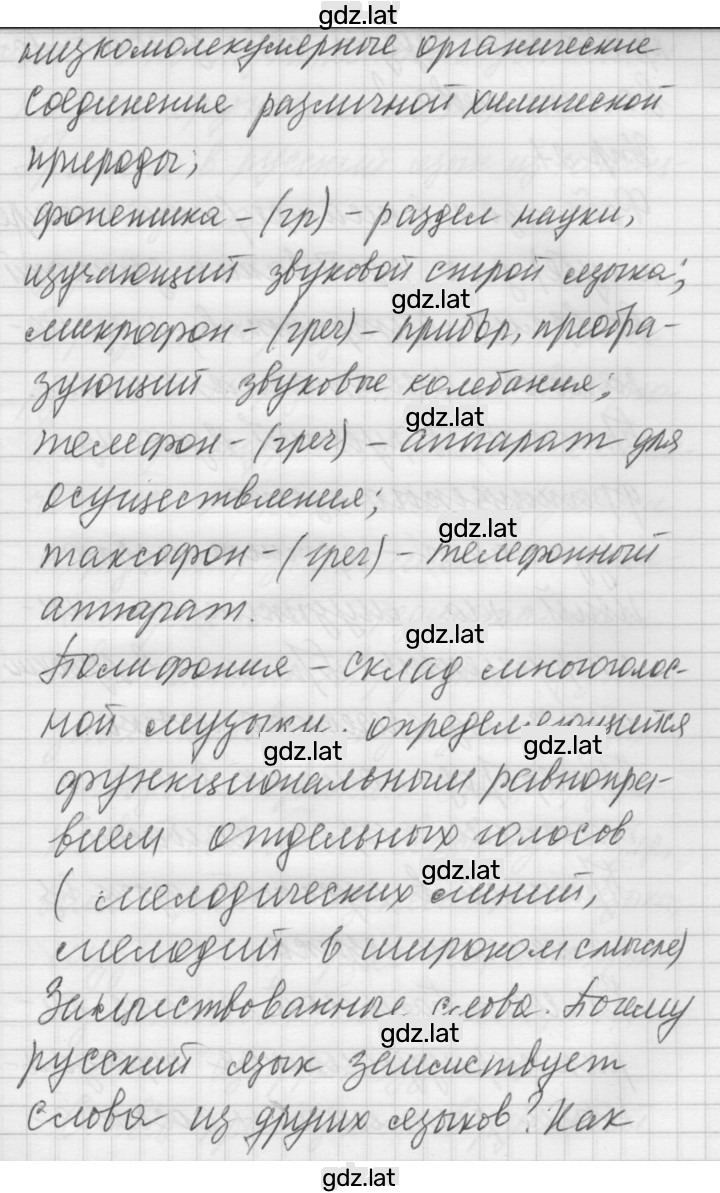 gdz.lat
низкомолекулярные органические
соединения различной химической
природы;
фонетика - (гр) - раздел науки,
изучающий звуковой строй языка;
gdz.lat
микрофон - (греч) - прибор, преобра-
зующий звуковые колебания;
gdz.lat
телефон - (греч) - аппарат для
осуществления;
gdz.lat
таксофон - (греч) - телефонный
аппарат.
gdz.lat
Полифония - склад многоголос-
ной музыки, определяющийся
gdz.lat gdz.lat
функциональным равнопра-
вием отдельных голосов
gdz.lat
(мелодических линий,
мелодий в широком смысле)
Заимствованные слова. Почему
gdz.lat
русский язык заимствует
слова из других языков? Как
gdz.lat